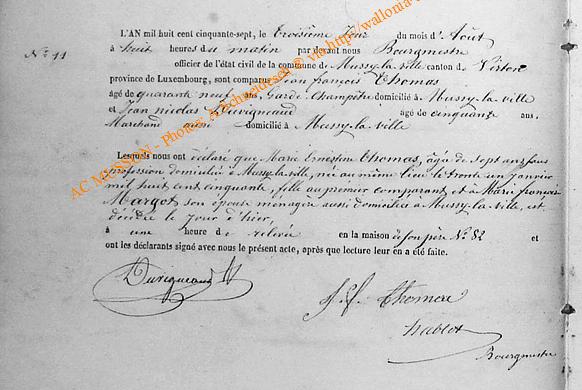 L'AN mil huit cent cinquante-sept, le troisième jour du mois d'Août
N° 11
à huit heures du matin par devant nous Bourgmestre
officier de l'état civil de la commune de Mussy-la-ville canton de Virton
province de Luxembourg, sont comparus Jean françois Thomas
âgé de quarante neuf ans, Garde-Champêtre domicilié à Mussy-la-ville
et Jean nicolas Duvigneaud âgé de cinquante ans,
Marchand aussi domicilié à Mussy-la-ville
Lesquels nous ont déclaré que Marie Ernestine Thomas, âgée de sept ans sans
profession domiciliée à Mussy-la-ville, née au même lieu le trente un janvier
mil huit cent cinquante, fille au premier comparant et à Marie françoise
Margot son épouse ménagère aussi domiciliée à Mussy-la-ville, est
décédée le jour d'hier,
à une heure de relevée en la maison de son père N° 82 et
ont les déclarants signé avec nous le présent acte, après que lecture leur en a été faite.
Duvigneaud
J. f. Thomas
Hablot
Bourgmestre
AC MUSSON - Photos: A. Schneidesch © via http://wallonia-